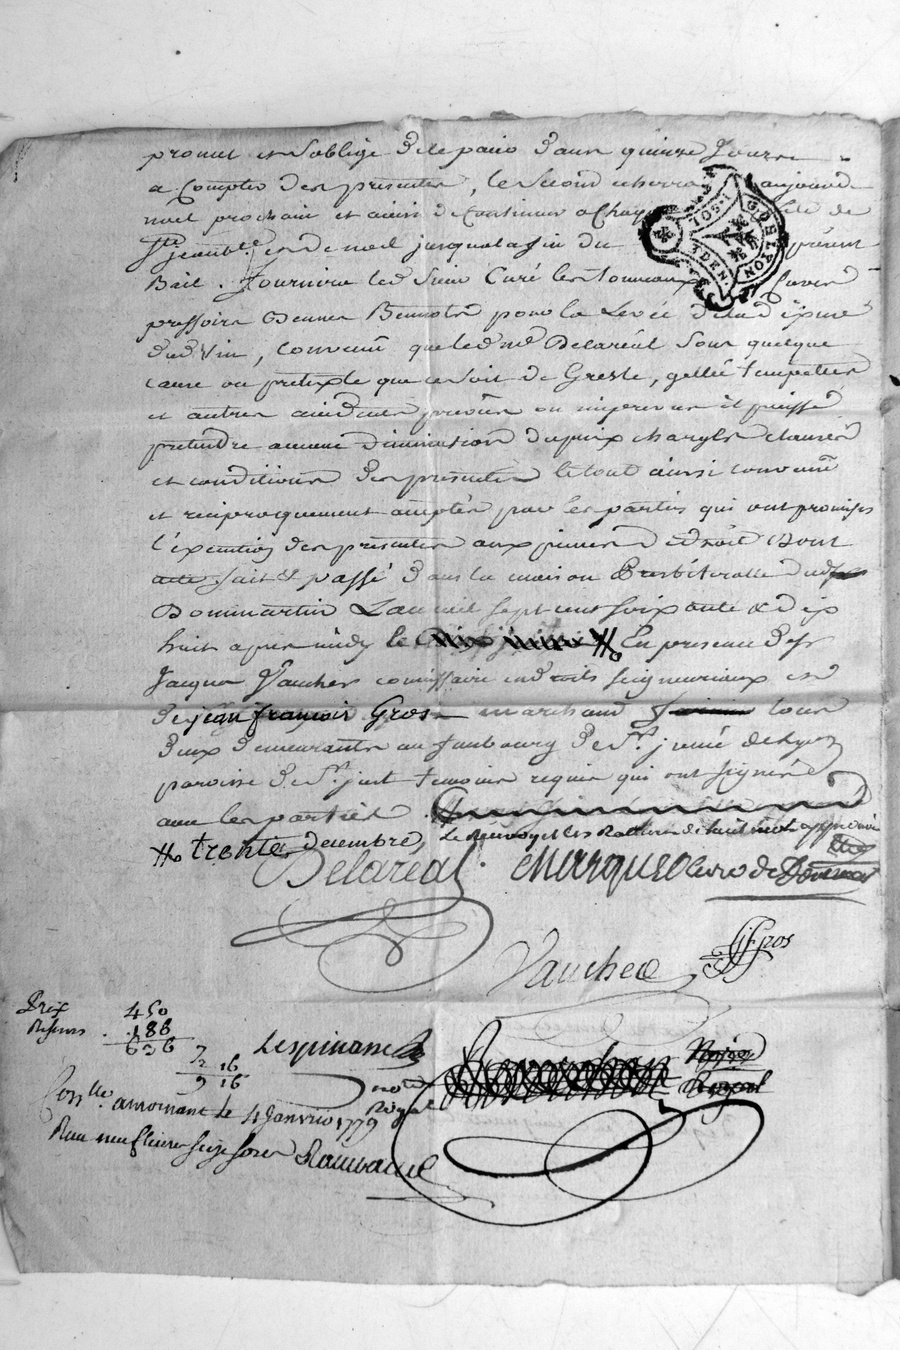 promet et s'oblige de le paier dans quinze Jours
a Compter des presentes, le second
noel prochain et ainsi de Continuer a de
St jean bte. et de noel jusqu'a la fin du présent
Bail. Fournira led Sieur Curé les tonneaux
pressoirs & bennes pour la Levée de la dixme
dud Vin, Convenu que led me Delaréal sous quelque
cause ou pretexte que ce soit de Gresle, gellée tempetes
et autres prevûs ou imprevus il puisse
pretendre aucune diminution du prix charges clauses
et conditions des presentes le tout ainsi convenu
et reciproquement accepté par les parties qui ont promises
l'execution des presentes aux peines de droit Dont
acte fait & passé dans la maison Presbiteralle dud
Dommartin L'an mil sept cent soixante & dix
huit apres midy le En presence de sr
Jacques Vaucher commissaire en droits seigneuriaux et
de jean françois Gros marchand tous
deux demeurants au faubourg de St. jrenée de Lyon
paroisse de St. just temoins requis qui ont signés
avec les parties.
trente decembre, Le Renvoy et les Ratures approuvés
Delareal. Marques curé de
Vaucher JfGros
Prix 450
Reserves 186
636
7
2 16
9 16
Lespinasse
Notre
Royal
Conlle. a mornant Le 4 Janvier 1779
Reçu neuf livres seize sols